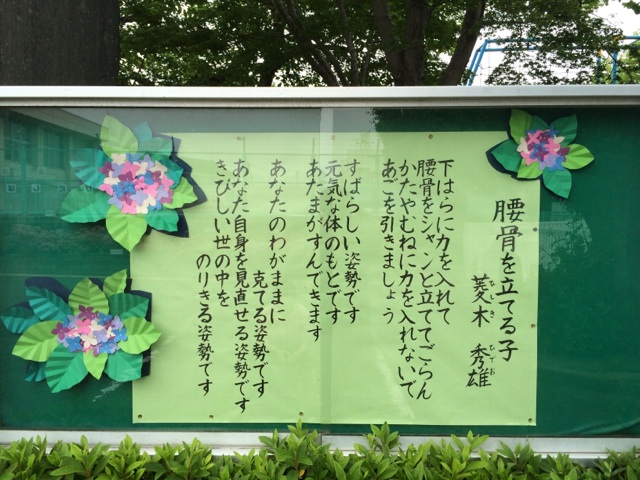 腰骨を立てる子
菱木 秀雄
ひしき ひでお
下はらに力を入れて
腰骨をシャンと立ててごらん
かたやむねに力を入れないで
あごを引きましょう
すばらしい姿勢です
元気な体のもとです
あたまがすんできます
あなたのわがままに
克てる姿勢です
あなた自身を見直せる姿勢です
きびしい世の中を
のりきる姿勢です